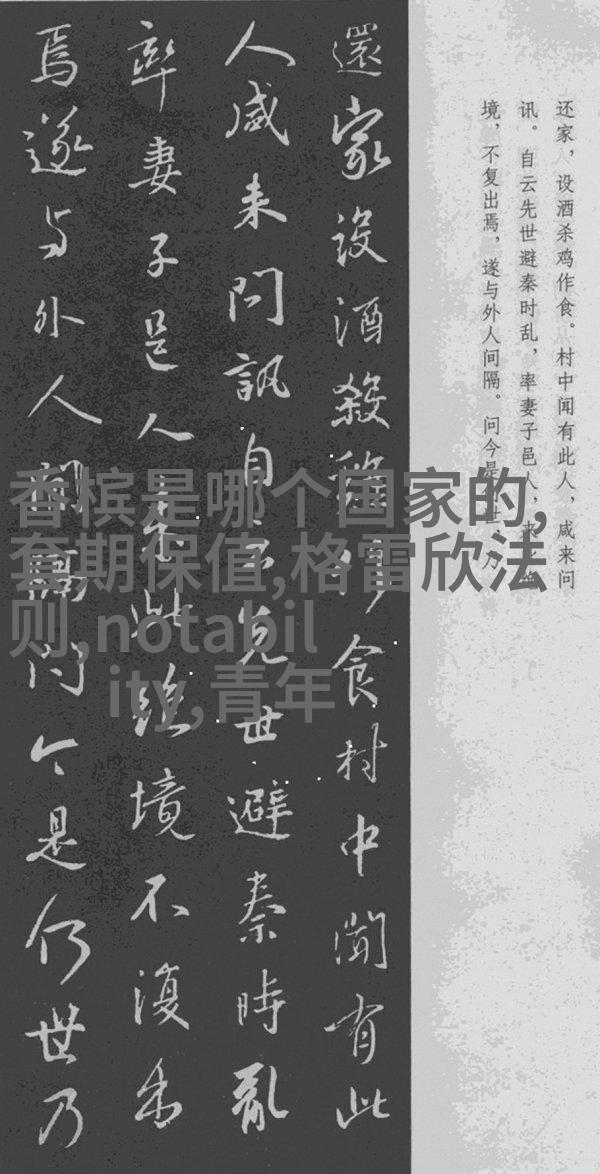 還家設酒殺鷄作食村中聞有此
人咸来問訊自云先世避秦時亂
率妻子邑人来此絶境不復出
焉遂与外人間隔問今是何世乃
还家，设酒杀鸡作食。村中闻有此人，咸来问
讯。自云先世避秦时乱，率妻子邑人，来此绝
境，不复出焉，遂与外人间隔。问今是何世，乃
香槟是哪个国家的,
套期保值,格雷欣法
则,notabil
ity,青年